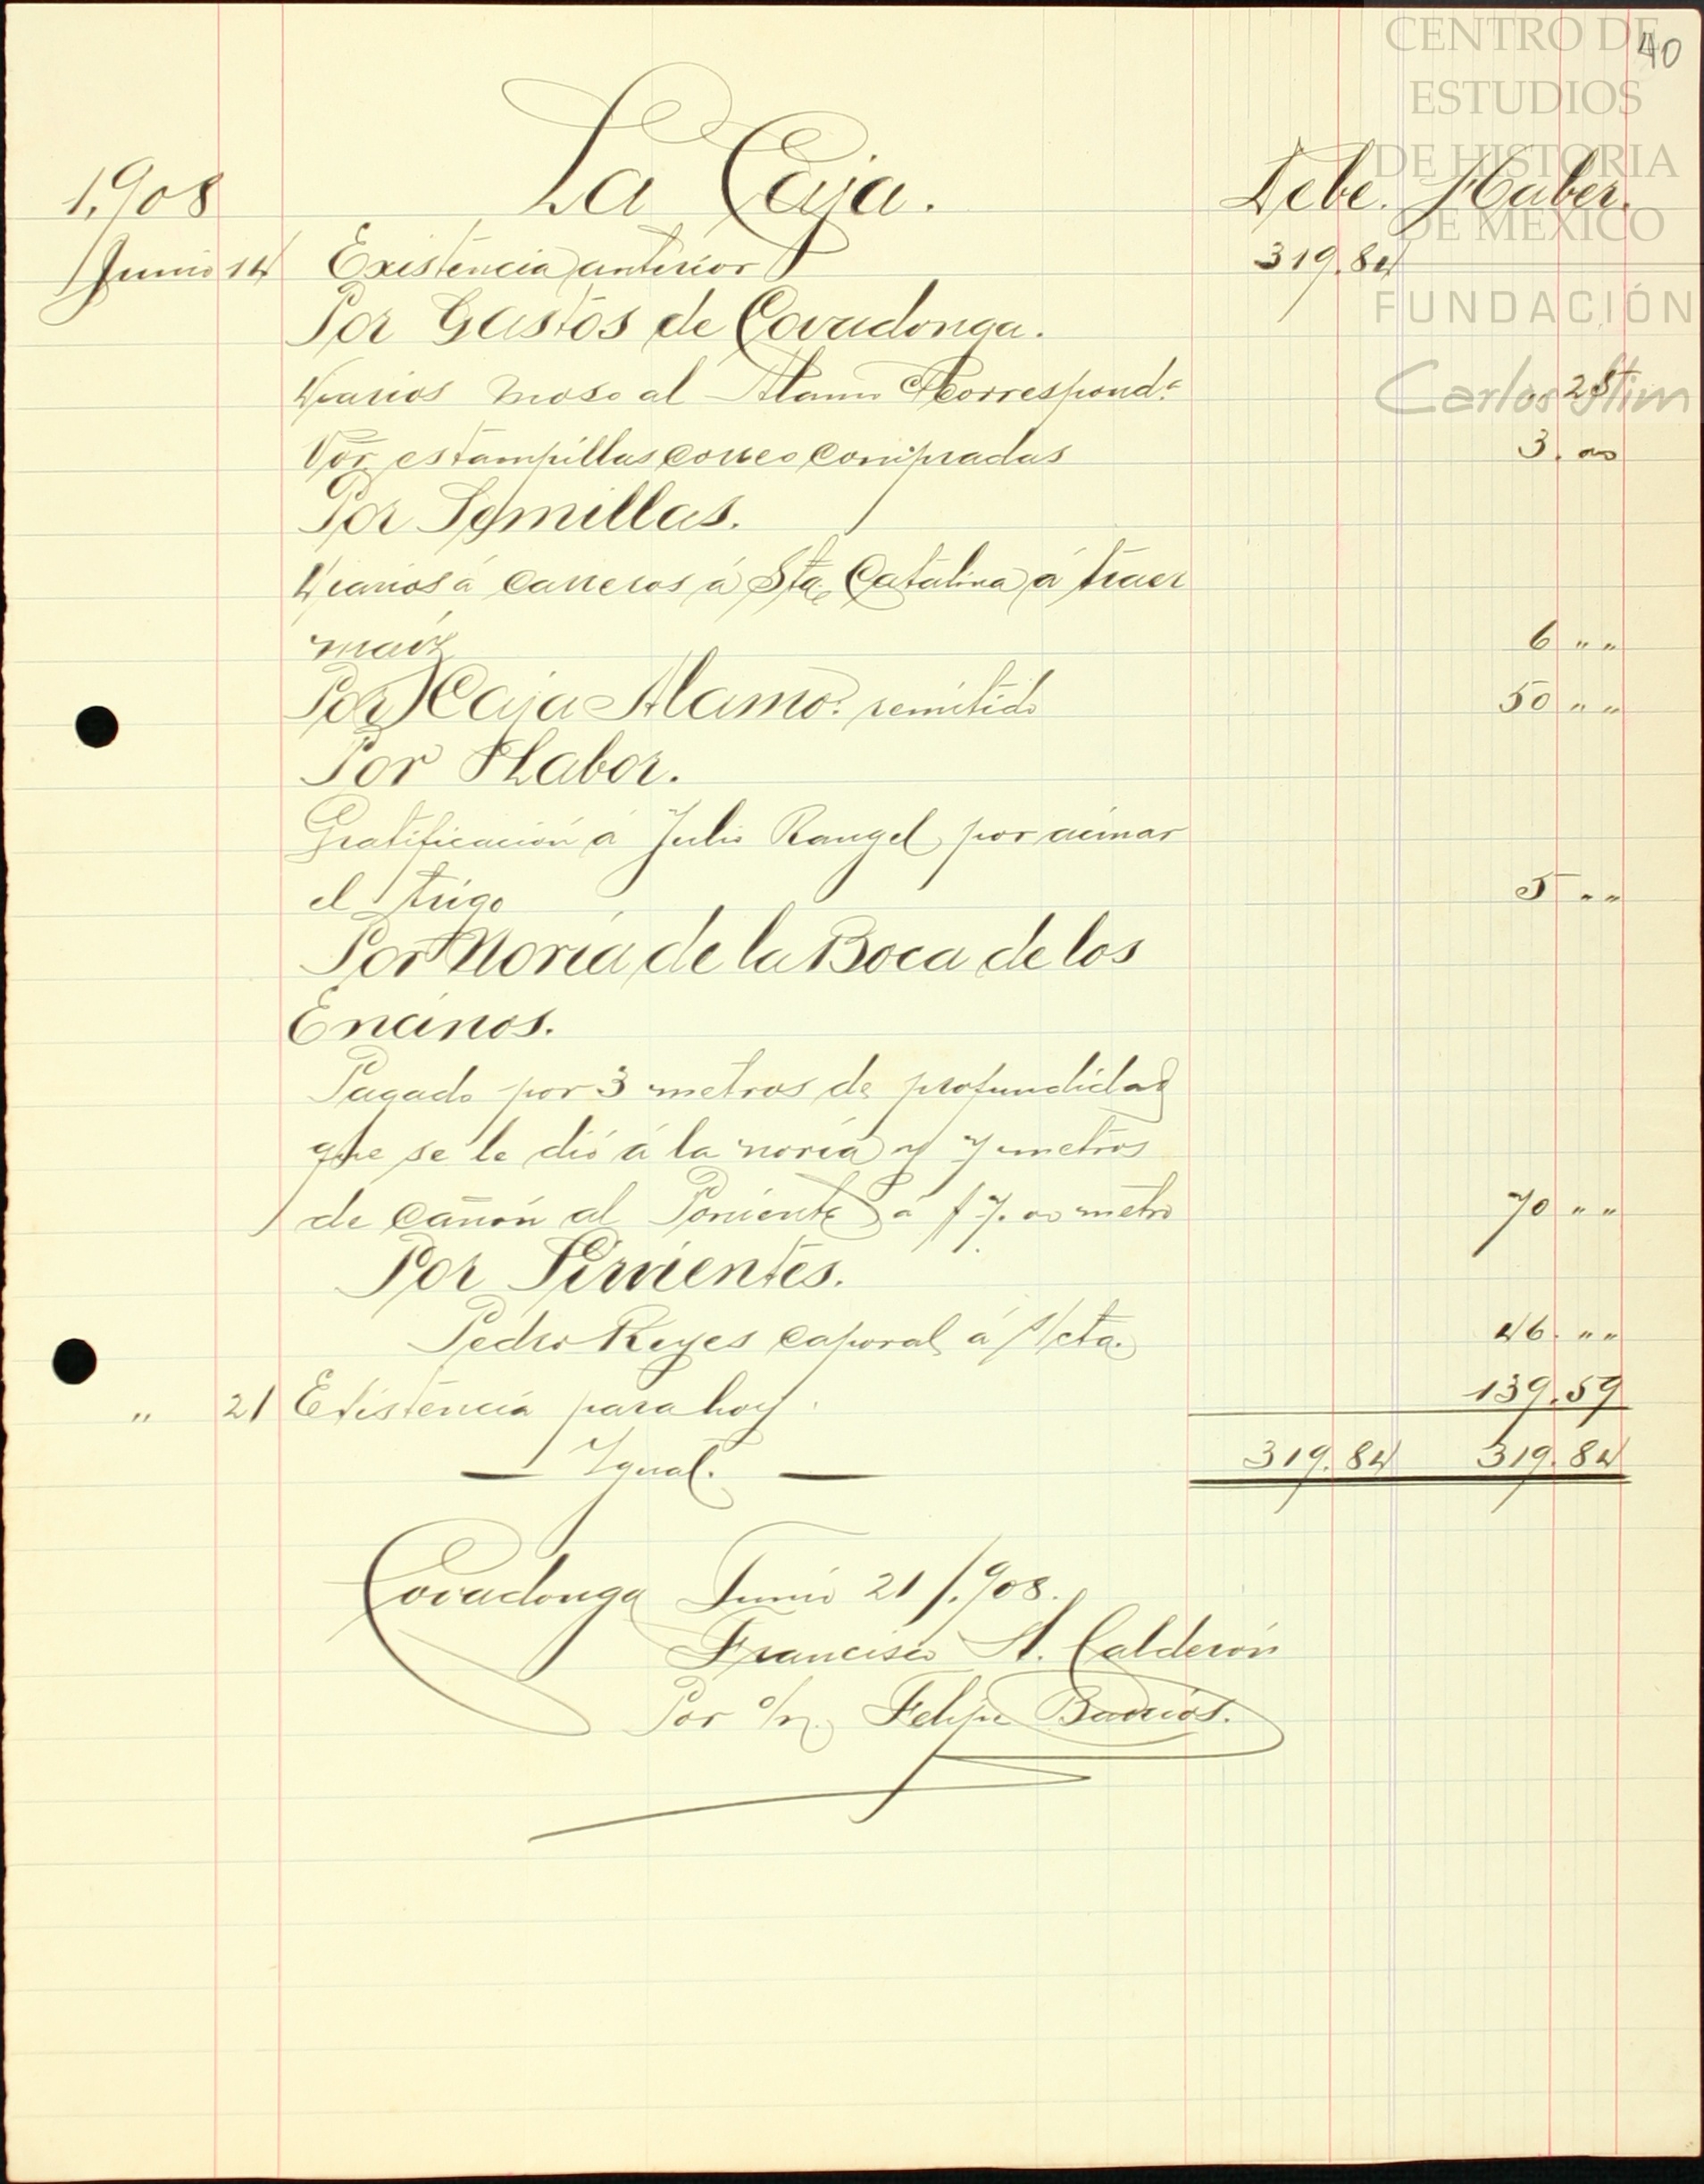 40
CENTRO DE
ESTUDIOS
DE HISTORIA
DE MEXICO
FUNDACIÓN
Carlos Slim
1,908 La Caja. Debe. Haber.
Junio 14 Existencia anterior 319.84
Por Gastos de Covadonga.
Viarios moso al Alamo Correspond.ª „ 25
Por estampillas correo compradas 3. 00
Por Semillas.
Viarios á carreros á Sta. Catalina á traer
maíz 6 „ „
Por Caja Alamo. remitido 50 „ „
Por Labor.
Gratificación á Julio Rangel por acinar
el trigo 5 „ „
Por Noria de la Boca de los
Encinos.
Pagado por 3 metros de profundidad
que se le dió á la noria y 7 metros
de cañón al Poniente á $7.00 metro 70 „ „
Por Sirvientes.
Pedro Reyes caporal á s/cta. 46. „ „
„ 21 Existencia para hoy. 139.59
— Igual. — 319.84 319.84
Covadonga Junio 21/.908.
Francisco A. Calderón
Por o/n. Felipe Barrios.